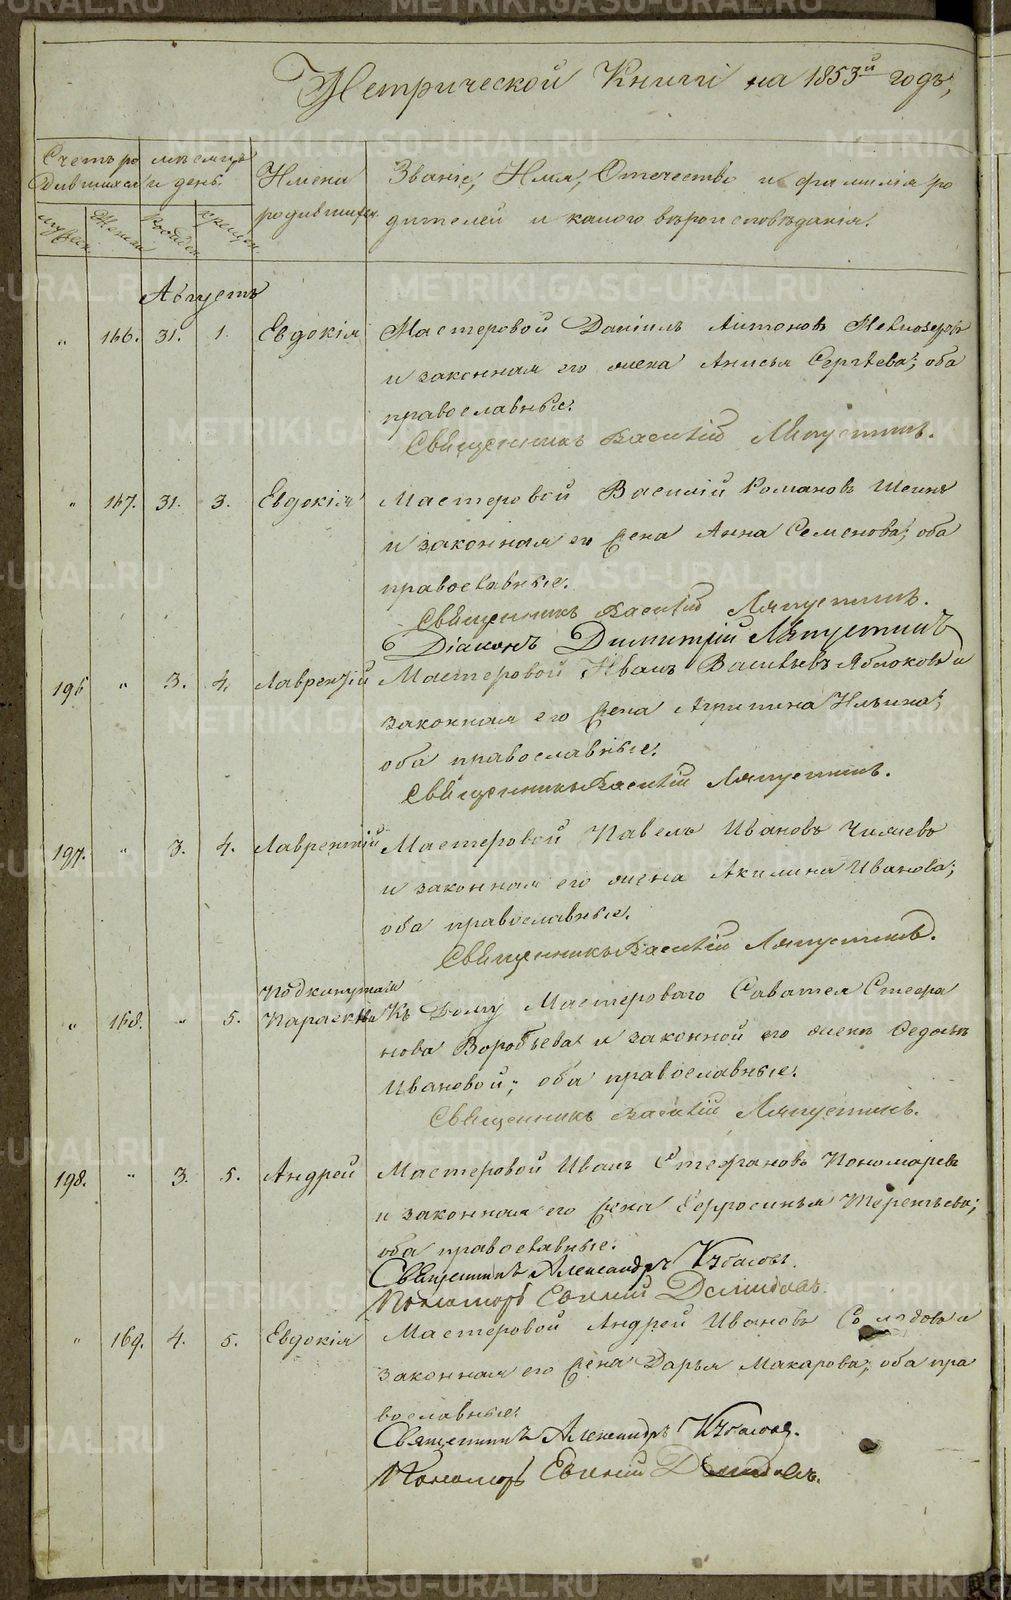 Метрической Книги на 1853й годъ,
Счетъ ро мѣсяцъ
дившихся и день. Имена Званіе, Имя, Отечество и фамилія ро
мужеск. Женск. рожден. крещен. родившихся. дителей и какого вѣроисповѣданія.
Августъ
„ 166. 31. 1. Евдокія Мастеровой Даніилъ Антоновъ
и законная его жена Анисья Сергѣева; оба
православные.
Священникъ Василій Ляпустинъ.
„ 167. 31. 3. Евдокія Мастеровой Василій Романовъ
и законная его жена Анна Семенова; оба
православные.
Священникъ Василій Ляпустинъ.
Діаконъ Димитрій Ляпустинъ
196 „ 3. 4. Лаврентій Мастеровой Иванъ Васильевъ Яблоковъ и
законная его жена Агрипина Ильина;
оба православные.
Священникъ Василій Ляпустинъ.
197. „ 3. 4. Лаврентій Мастеровой Павелъ Ивановъ
и законная его жена Акилина Иванова;
оба православные.
Священникъ Василій Ляпустинъ.
Подкинутая
„ 168. „ 5. Параскева Къ Дому Мастероваго Саватея Стефа
нова Воробьева и законной его жены Ѳедосьи
Ивановой; оба православные.
Священникъ Василій Ляпустинъ.
198. „ 3. 5. Андрей Мастеровой Иванъ Стефановъ Пономаревъ
и законная его жена Ефросинья Терентьева;
оба православные.
Священникъ Александръ
Пономарь Евгений Демидовъ.
„ 169. 4. 5. Евдокія Мастеровой Андрей Ивановъ Солодовъ и
законная его жена Дарья Макарова; оба пра
вославные.
Священникъ Александръ
Пономарь Евгений Демидовъ.
METRIKI.GASO-URAL.RU